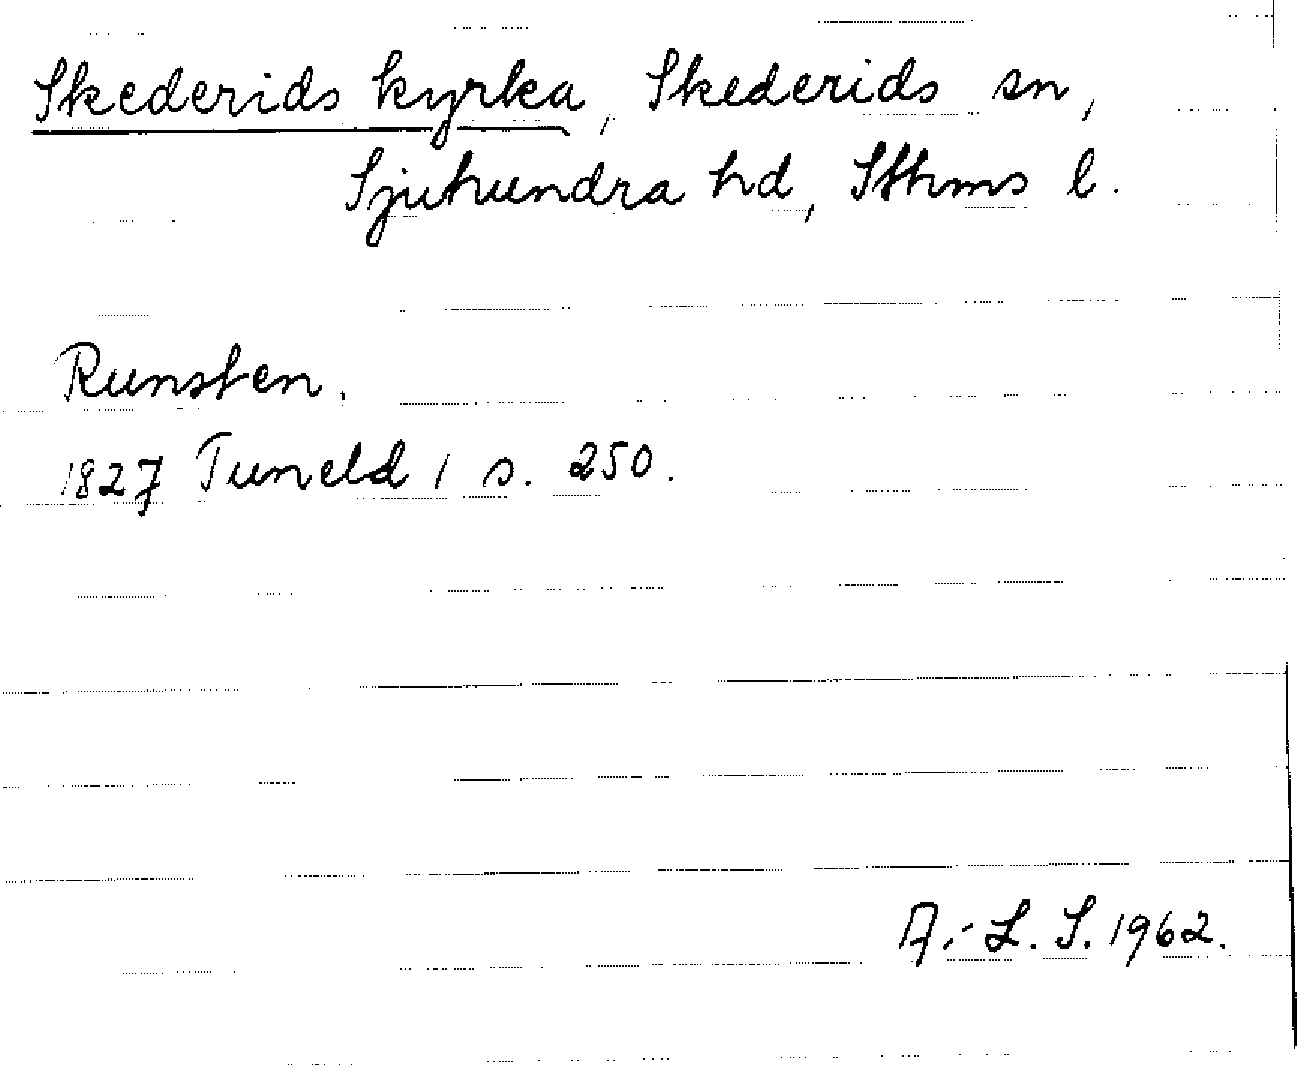 Skederids kyrka, Skederids sn,
Sjuhundra hd, Sthms l.
Runsten.
1827 Tuneld 1 s. 250.
A.-L. S. 1962.